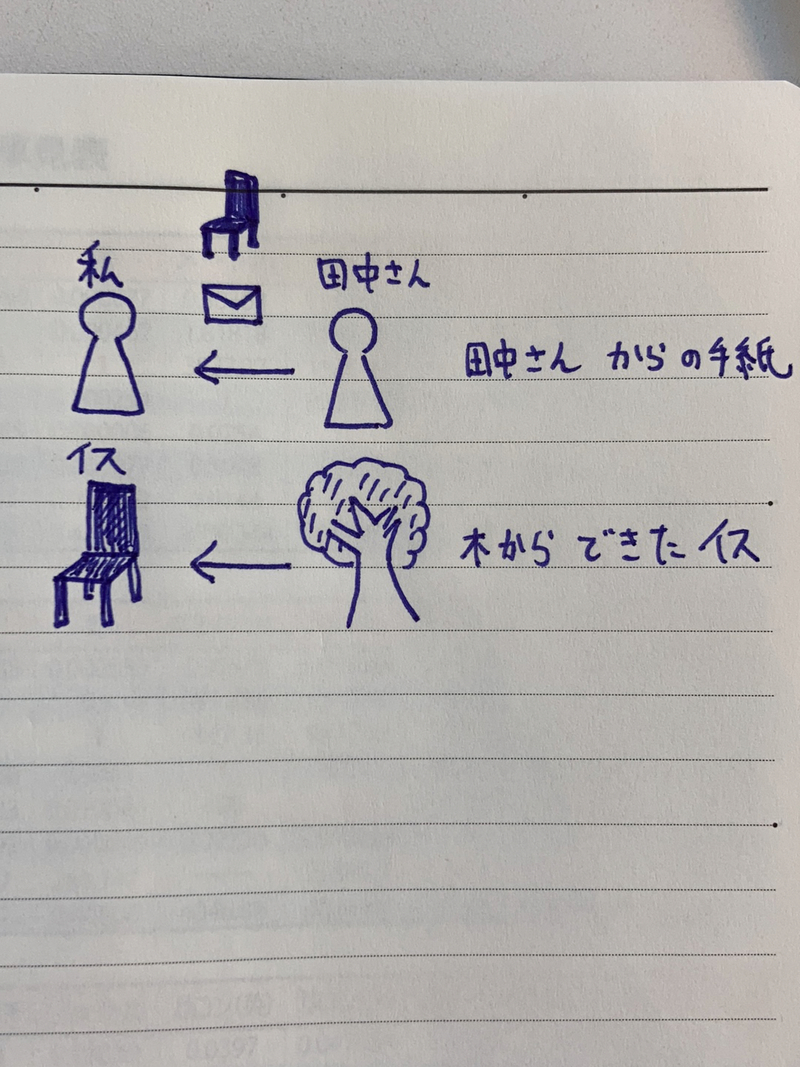 私
田中さん
田中さん からの手紙
イス
木から できた イス